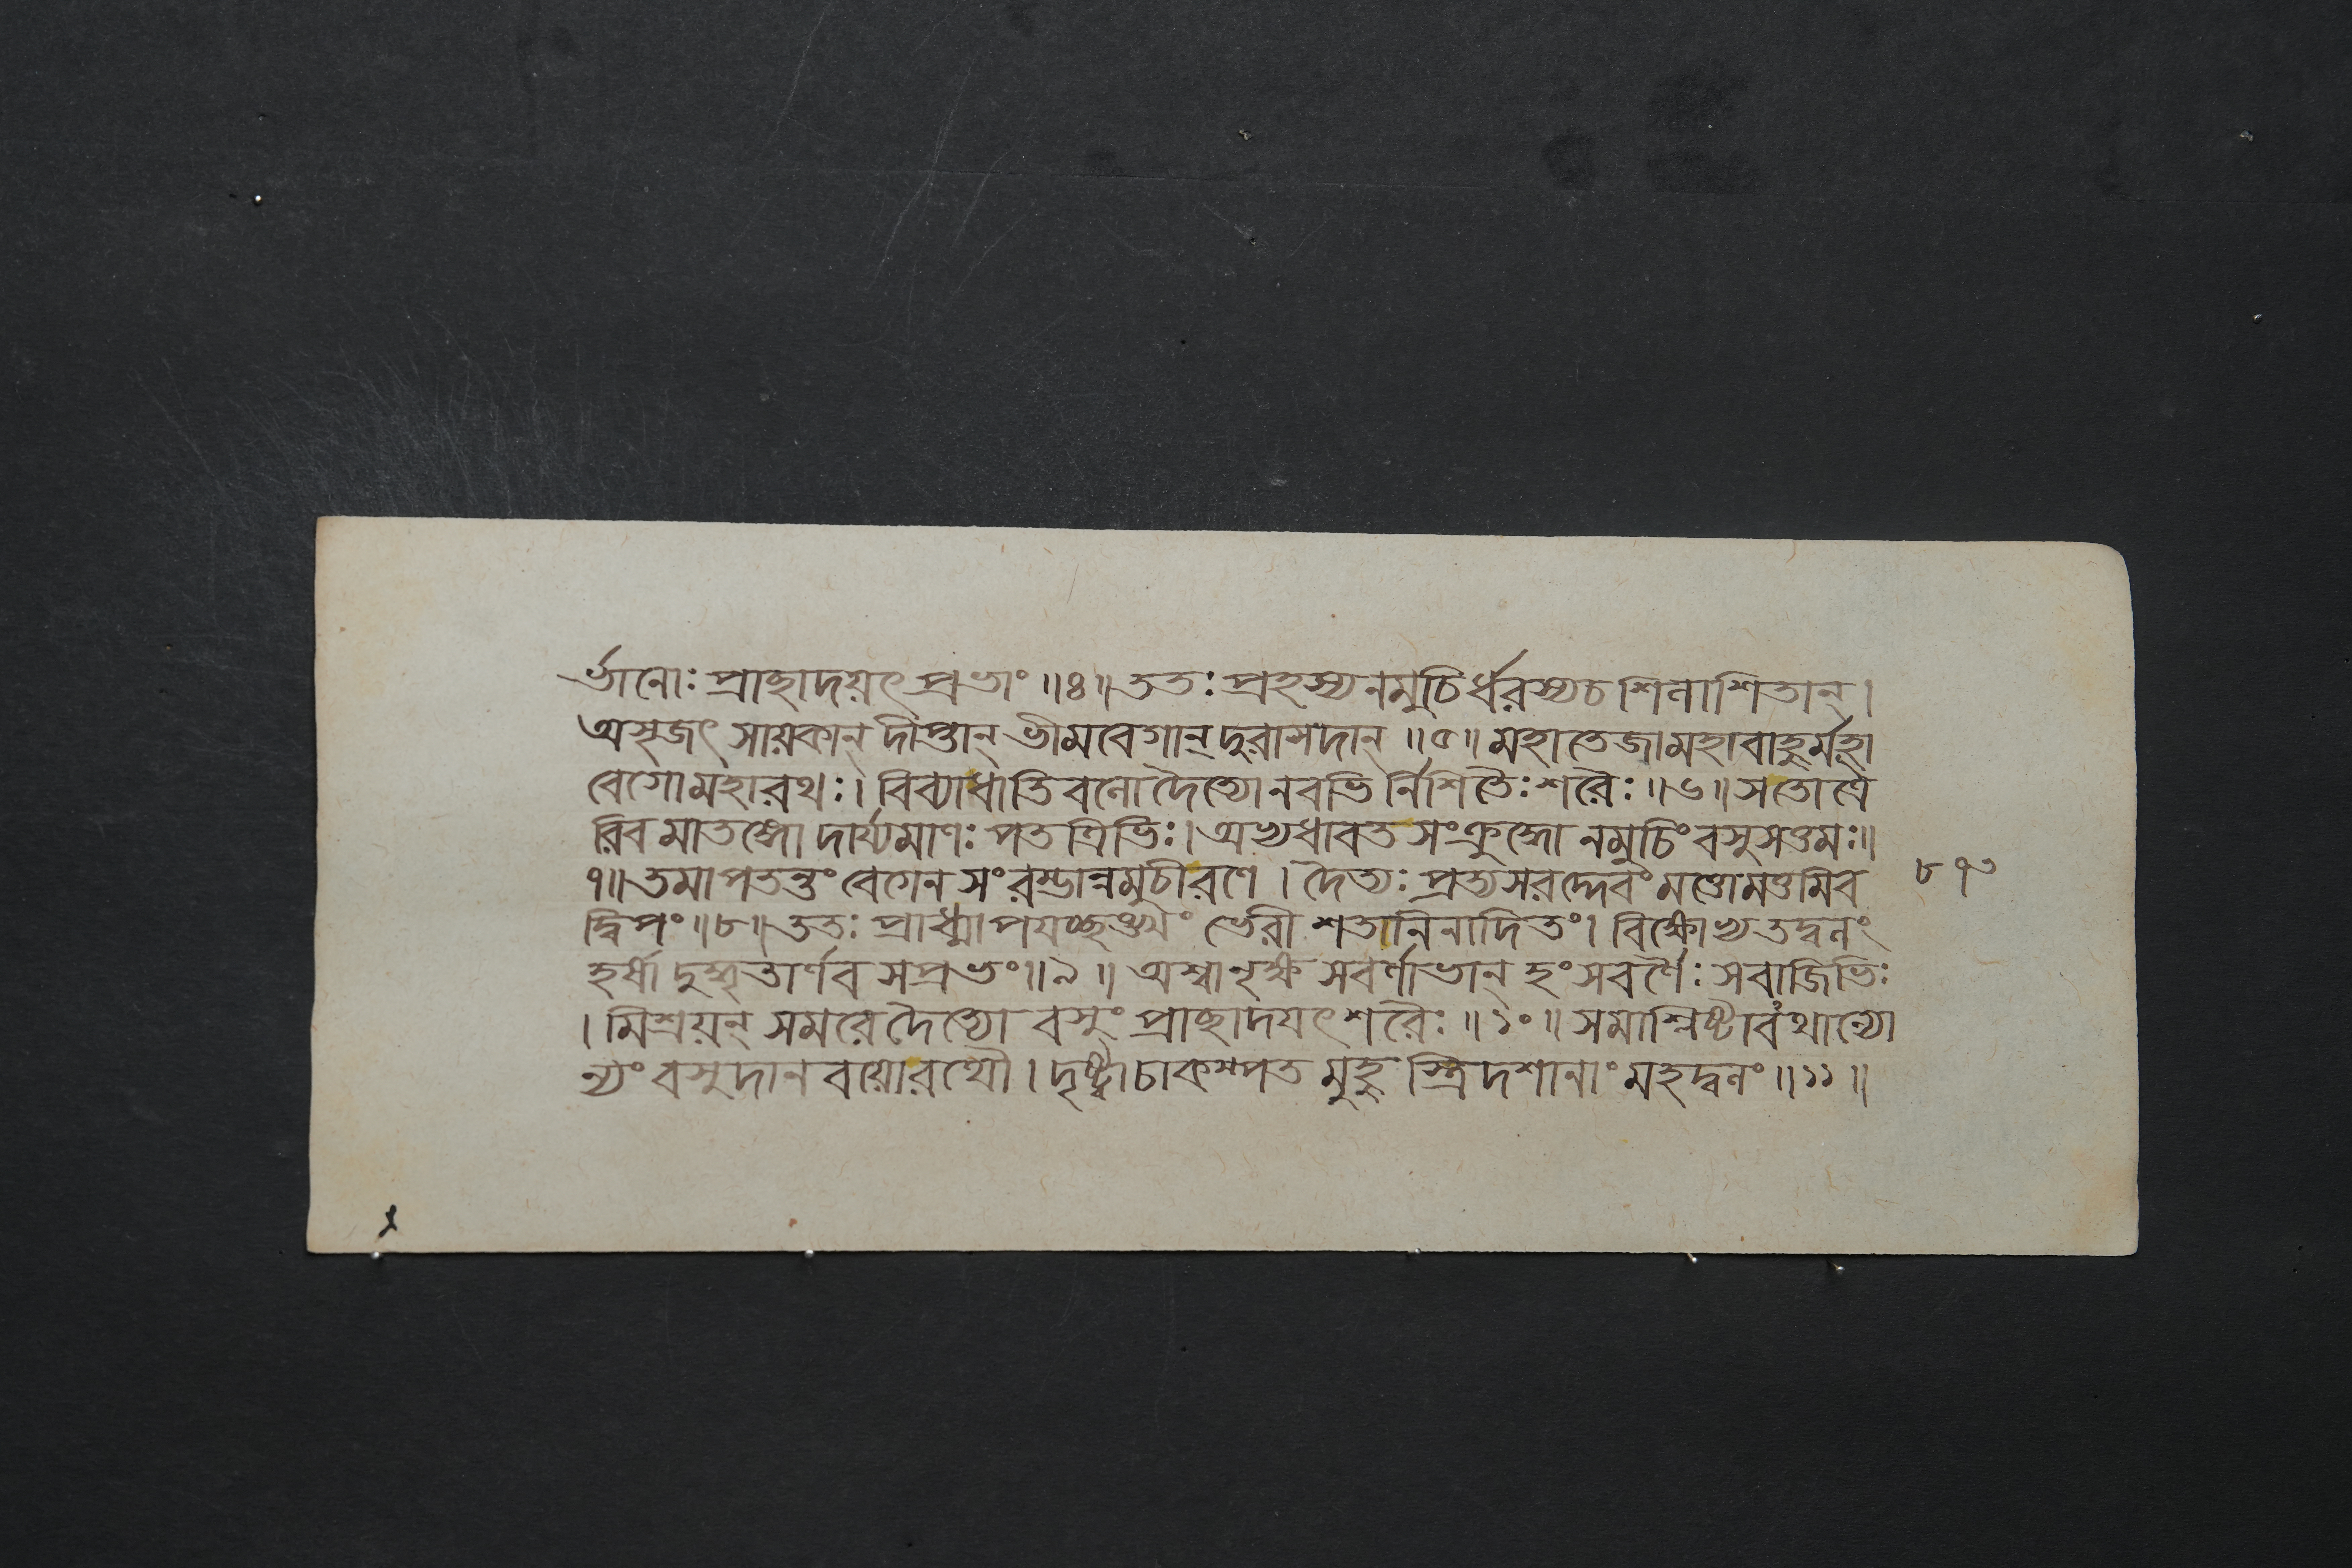 র্ভানোঃ প্রাচ্ছাদয়ৎ প্রভাং ॥৪॥ ততঃ প্রহস্য নমুচির্ধরস্য চ শিনাশিতান্।
অসৃজৎ সায়কান্ দীপ্তান্ ভীমবেগান্ দুরাসদান্ ॥৫॥ মহাতেজা মহাবাহুর্মহা
বেগো মহারথঃ। বিব্যাধাতিবনো দৈত্যো নবভি র্নিশিতৈঃ শরৈঃ ॥৬॥ স তোত্রৈ
রিব মাতঙ্গো দার্য্যমাণঃ পতত্রিভিঃ। অভ্যধাবত সংক্রুদ্ধো নমুচিং বসুসত্তমঃ॥
৭॥ তমাপতন্তং বেগেন সংরম্ভান্নমুচী রণে। দৈত্যঃ প্রত্যসরদ্দেবং মত্তোমত্তমিব
দ্বিপং ॥৮॥ ততঃ প্রাধ্মাপয়চ্ছঙ্খং ভেরী শতনিনাদিতং। বিক্ষোভ্য তদ্বলং
হর্ষা দুদ্ধৃতার্ণব সপ্রভং॥৯॥ অশ্বানৃক্ষ সবর্ণাভান্ হংসবর্ণৈঃ সবাজিভিঃ
। মিশ্রয়ন্ সমরে দৈত্যো বসুং প্রাচ্ছাদয়ৎ শরৈঃ ॥১০॥ সমাশ্লিষ্টাবথান্যো
ন্যং বসুদানবয়োরথৌ। দৃষ্ট্বা চাকম্পত মুহু স্ত্রিদশানাং মহদ্বলং ॥১১॥